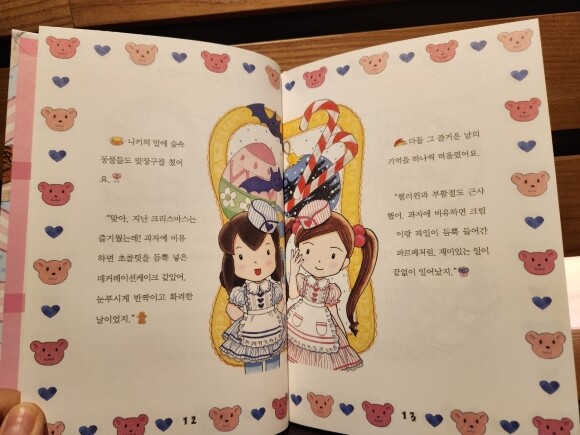 니키의 말에 숲속
동물들도 맞장구를 쳤어
요.
"맞아, 지난 크리스마스는
즐거웠는데! 과자에 비유
하면 초콜릿을 듬뿍 넣은
데커레이션케이크 같았어.
눈부시게 반짝이고 화려한
날이었지."
12
다들 그 즐거운 날의
기억을 하나씩 떠올렸어요.
"핼러윈과 부활절도 근사
했어. 과자에 비유하면 크림
이랑 과일이 듬뿍 들어간
파르페처럼, 재미있는 일이
끝없이 일어났지."
13